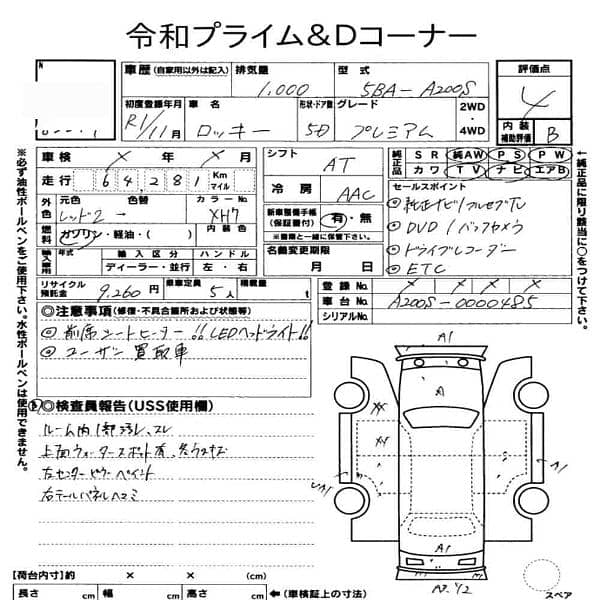 令和プライム&Dコーナー
車歴 (自家用以外は記入) 排気量 1,000 型式 5BA-A200S 評価点 4
初度登録年月 R1/11月 車名 ロッキー 形状・ドア数 5D グレード プレミアム 2WD・4WD 内装補助評価 B
車検 × 年 × 月 シフト AT 純正品 SR 純AW PS PW
走行 64,281 Km マイル 冷房 AAC カワ TV ナビ エアB
外色 元色 レッド2 色替 → カラーNo. XH7 新車整備手帳(保証書付) 有・無 ※書類と一緒に保管下さい。
セールスポイント
◎純正ナビ/フルセグTV
◎DVD/バックカメラ
◎ドライブレコーダー
◎ETC
燃料 ガソリン・軽油・( ) 内装色
輸入車用 年式 輸入区分 ディーラー・並行 ハンドル 左・右 名義変更期限 月 日
リサイクル預託金 9,260円 乗車定員 5人 積載量 t
登録No.
車台No. A200S-0000485
シリアルNo.
◎注意事項 (修復・不具合箇所および状態等)
◎前席シートヒーター!!LEDヘッドライト!!
◎ユーザー買取車
◎検査員報告(USS使用欄)
ルーム内1部汚レ、スレ
上面ウォータースポット有、
左センターピラーペイント
右テールパネルヘコミ
【荷台内寸】約 × × (cm)
長さ cm 幅 cm 高さ cm ←(車検証上の寸法)
A1
A1
A
A1
A1
A1
スペア
※必ず油性ボールペンをご使用下さい。水性ボールペンは使用できません。
←純正品に限り該当に○をつけて下さい。